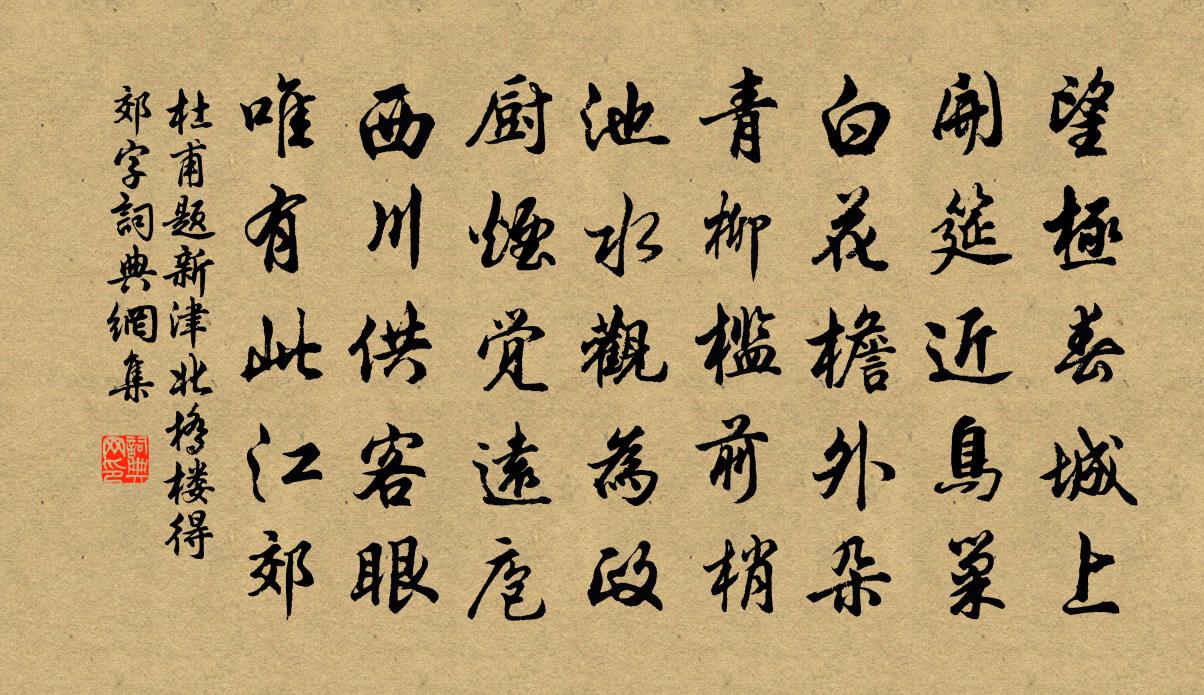 望極春城上
開筵近鳥巢
白花檐外朵
青柳檻前梢
池水觀為政
厨煙覚遠庖
西川供客眼
唯有此江郊
杜甫題新津北橋楼得
郊字詞典網集
詞典网印